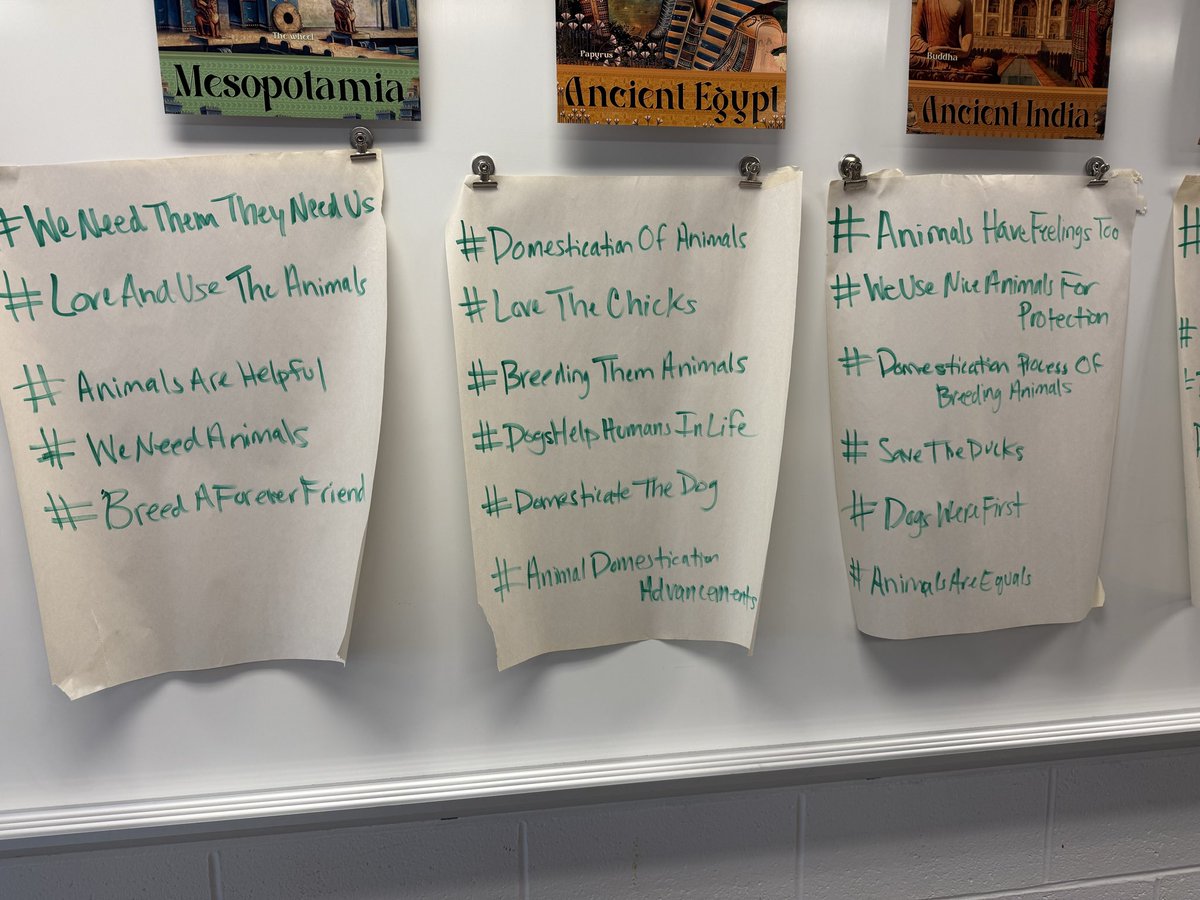 The wheel
Mesopotamia
Papyrus
Ancient Egypt
Buddha
Ancient India
#WeNeedThemTheyNeedUs
#LoveAndUseTheAnimals
#AnimalsAreHelpful
#WeNeedAnimals
#BreedAForeverFriend
#DomesticationOfAnimals
#LoveTheChicks
#BreedingThemAnimals
#DogsHelpHumansInLife
#DomesticateTheDog
#AnimalDomestication
Advancements
#AnimalsHaveFeelingsToo
#WeUseNiceAnimalsFor
Protection
#DomesticationProcessOf
BreedingAnimals
#SaveTheDucks
#DogsWereFirst
#AnimalsAreEquals
#
#